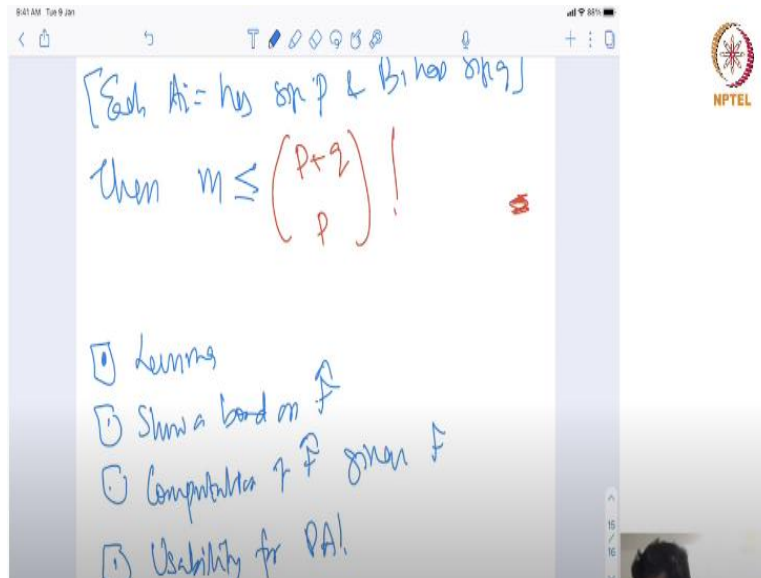 9:41 AM Tue 9 Jan
88%
NPTEL
[Each Ai = has size p & Bi has size q]
Then m ≤ (p+q
p) !
Lemma
Show a bound on F̂
Computation of F̂ given F
Usability for PA!
15
16